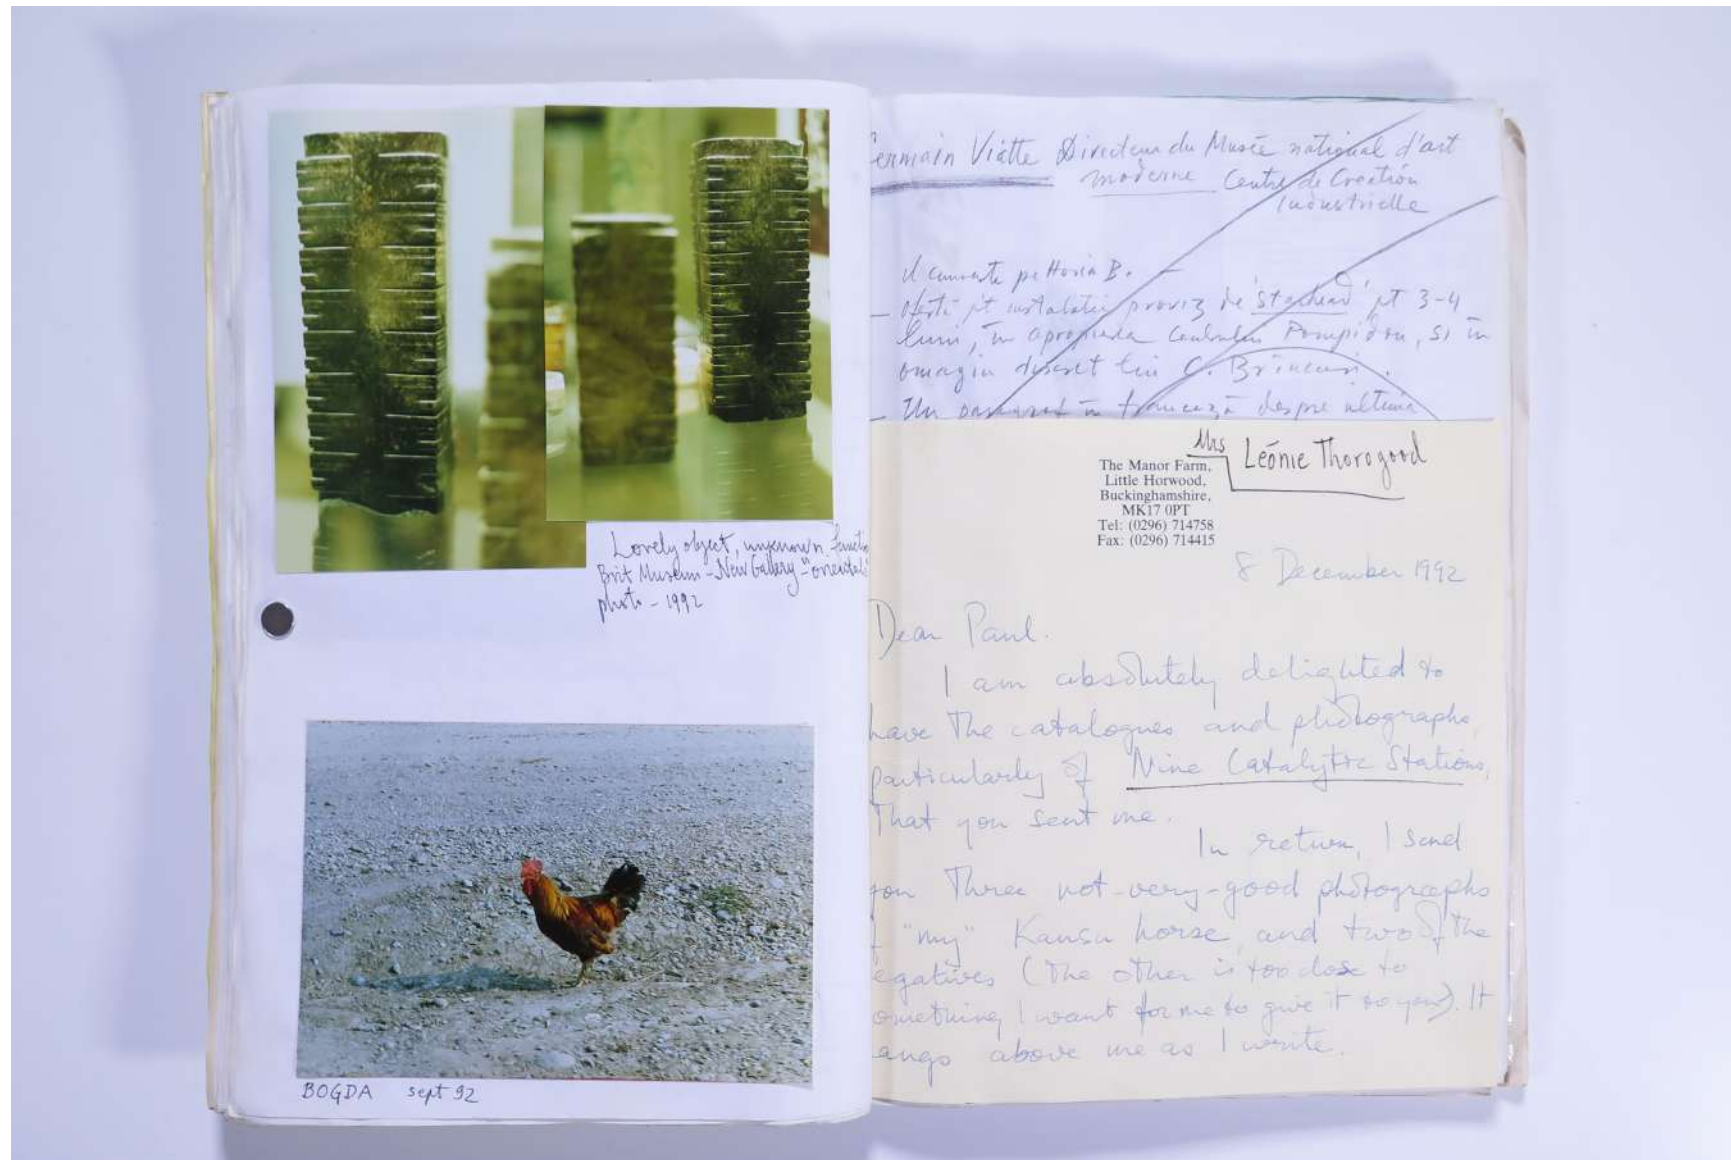 Lovely object, unknown
Brit Museum - New Gallery - "oriental"
photo - 1992
BOGDA sept 92
ermain Viatte Directeur du Musée national d'art
moderne Centre de Création
Industrielle
Il cunoaste pe Horia B. -
- Ofertă pt instalatie proviz de 'starhead' pt 3-4
luni, în apropierea Centrului Pompidou, si în
omagiu discret lui C. Brincusi.
- Un în franceză despre ultima
Mrs Léonie Thorogood
The Manor Farm,
Little Horwood,
Buckinghamshire,
MK17 0PT
Tel: (0296) 714758
Fax: (0296) 714415
8 December 1992
Dear Paul.
I am absolutely delighted to
have the catalogues and photographs,
particularly of Nine Catalytic Stations,
that you sent me.
In return, I send
you three not-very-good photographs
f "my" Kansu horse, and two of the
egatives (the other is too close to
omething I want for me to give it to you). It
angs above me as I write.